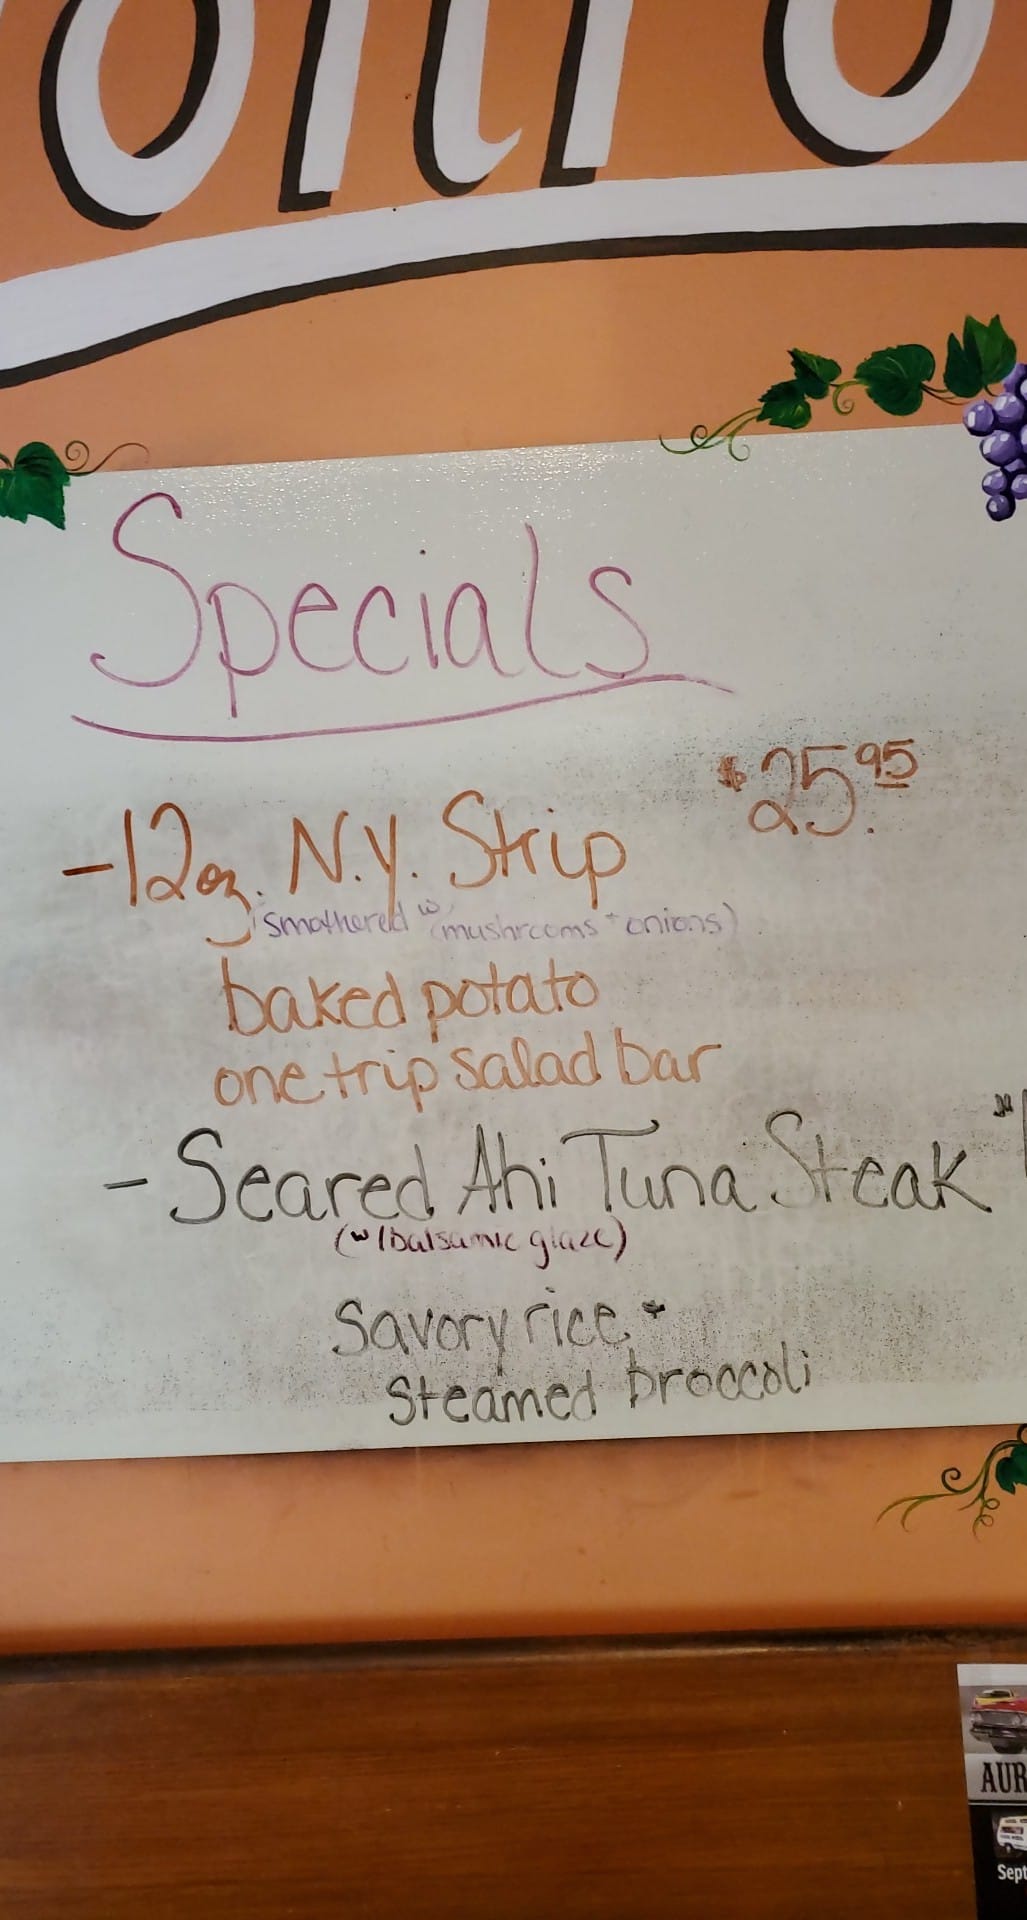 Specials
$25.95
-12oz. N.Y. Strip
(smothered w/ mushrooms + onions)
baked potato
one trip salad bar
- Seared Ahi Tuna Steak
(w/balsamic glaze)
Savory rice +
Steamed broccoli
AUR
Sept